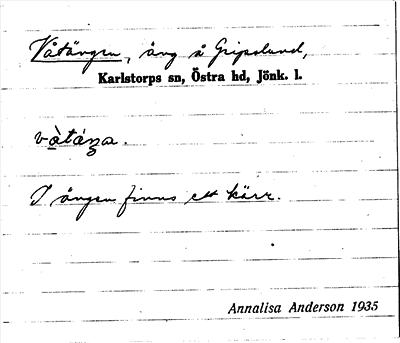 Våtängen, äng å Gripslund,
Karlstorps sn, Östra hd, Jönk. l.
I ängen finns ett kärr.
Annalisa Anderson 1935